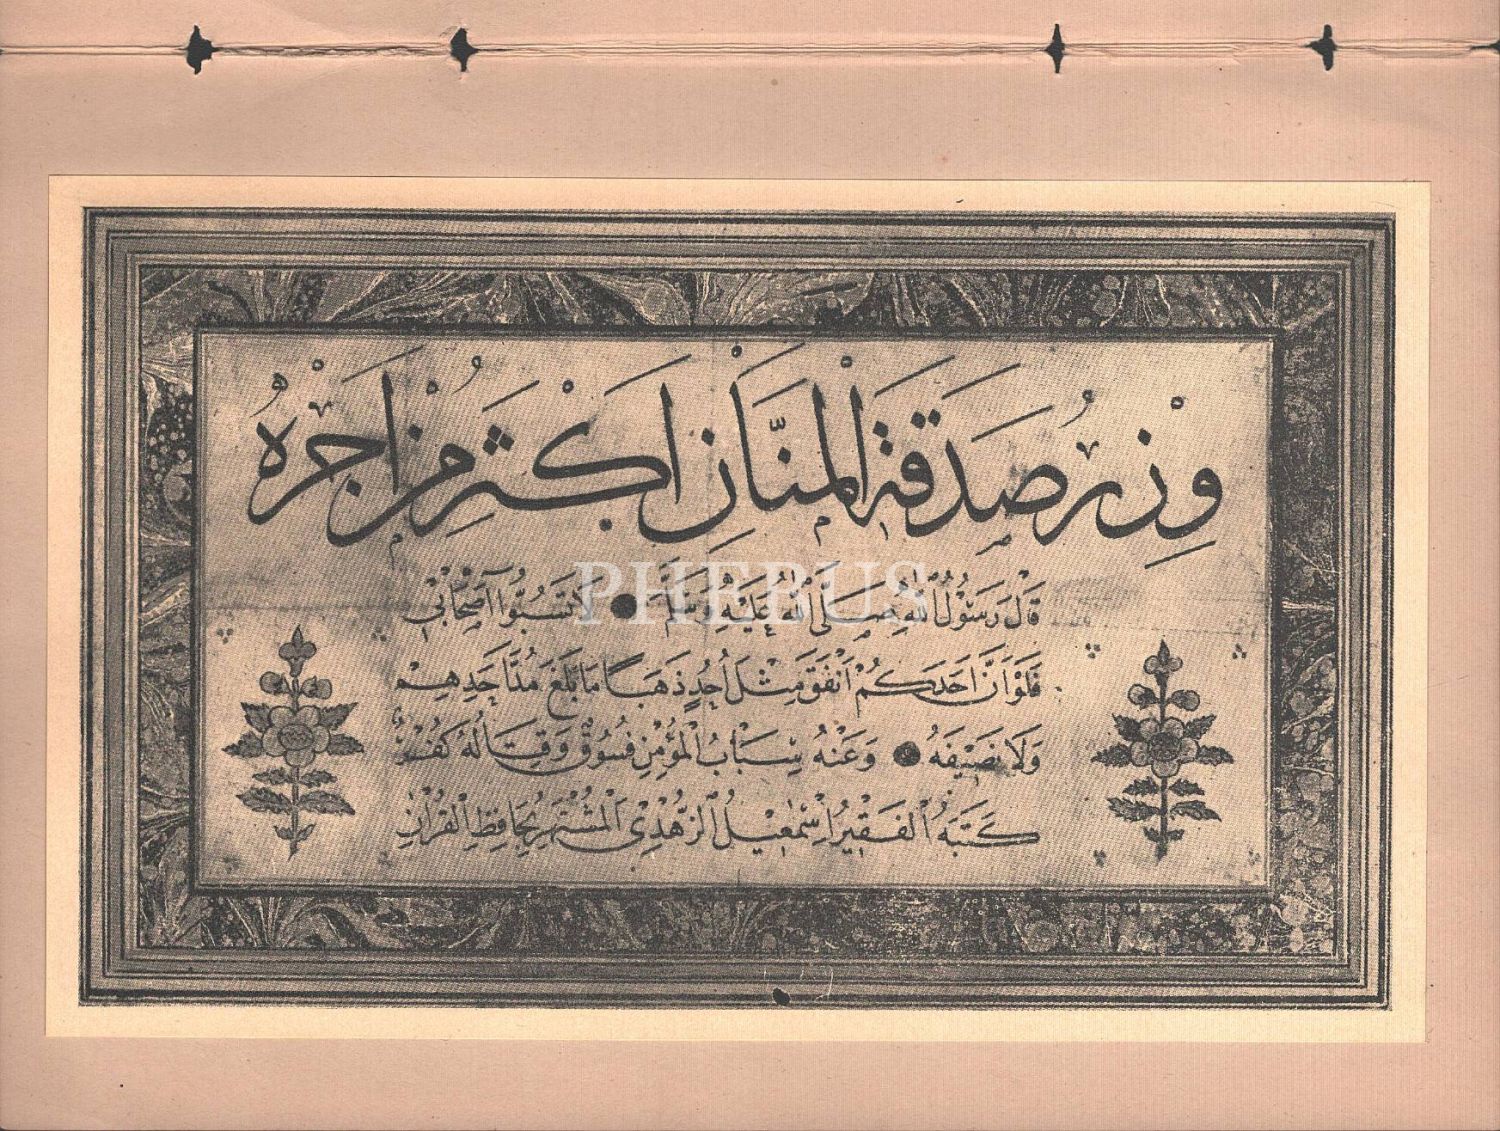 وِزْرُ صَدَقَةِ الْمَنَّانِ اَكْثَرُ مِنْ اَجْرِهِ
قَالَ رَسُولُ اللهِ صَلَّى اللهُ عَلَيْهِ وَسَلَّمَ لَا تَسُبُّوا اَصْحَابِي
فَلَوْ اَنَّ اَحَدَكُمْ اَنْفَقَ مِثْلَ اُحُدٍ ذَهَبًا مَا بَلَغَ مُدَّ اَحَدِهِمْ
وَلَا نَصِيفَهُ وَعَنْهُ سِبَابُ الْمُؤْمِنِ فُسُوقٌ وَقِتَالُهُ كُفْرٌ
كَتَبَهُ الْفَقِيرُ اِسْمٰعِيلُ الزُّهْدِيُ الْمُشْتَهِرُ بِحَافِظِ الْقُرْاٰنِ
PHEBUS